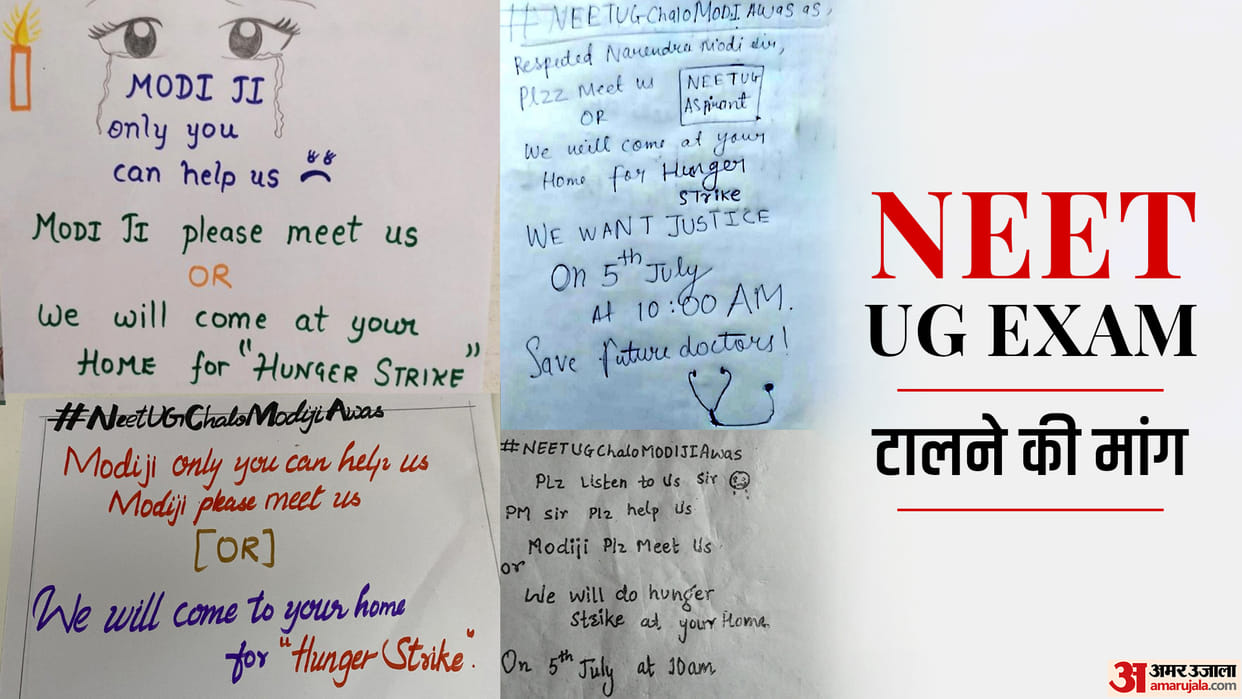 MODI JI
only you
can help us
MODI JI please meet us
OR
We will come at your
HOME for "HUNGER STRIKE"
#NEETUGChaloMODIAwas as,
Respected Narendra Modi sir,
Plzz Meet us
OR
NEETUG
ASpirant
We will come at your
Home for Hunger
STrike
WE WANT JUSTICE
On 5th July
At 10:00 AM.
Save future doctors!
#NeetUGChaloModijiAwas
Modiji only you can help us
Modiji please meet us
[OR]
We will come to your home
for "Hunger Strike".
#NEETUGChaloMODIJIAwas
PLz Listen to Us Sir
PM sir Plz help Us
Modiji Plz Meet Us
or
We will do hunger
Strike at your Home
On 5th July at 10am
NEET
UG EXAM
टालने की मांग
अ अमर उजाला
amarujala.com